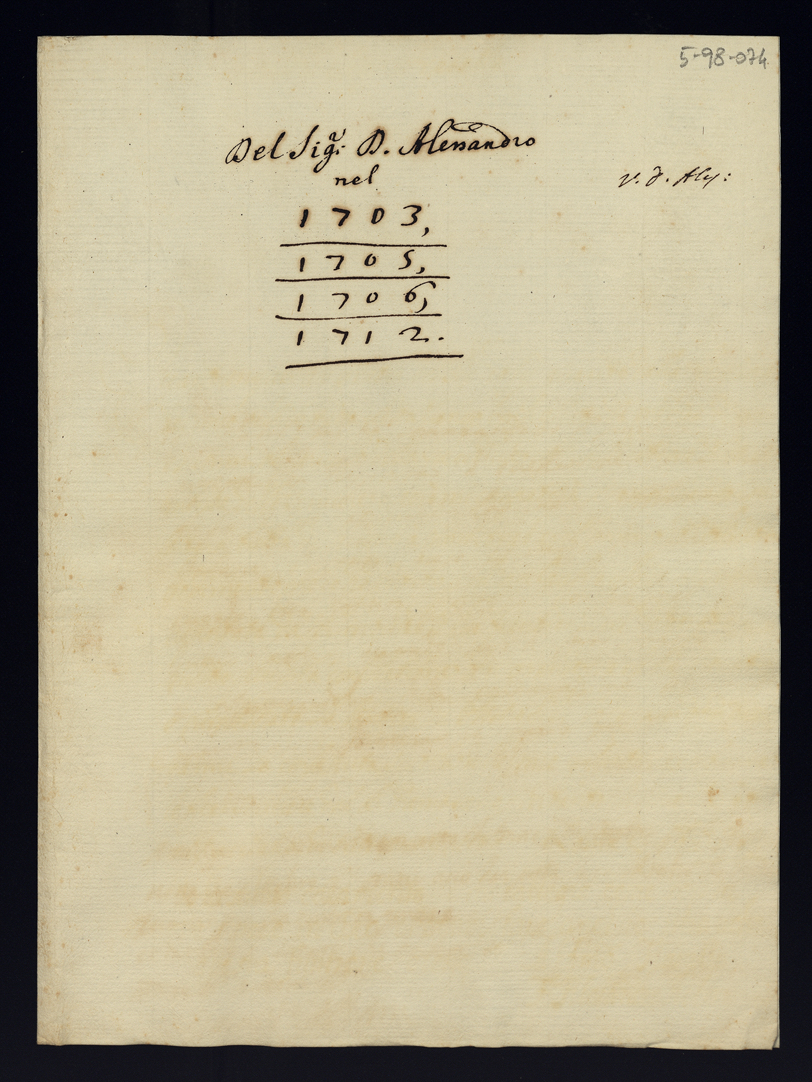 5-98-074
Del Sigr: D. Alessandro
nel
v. d. Aly:
1703,
1705,
1706,
1712.